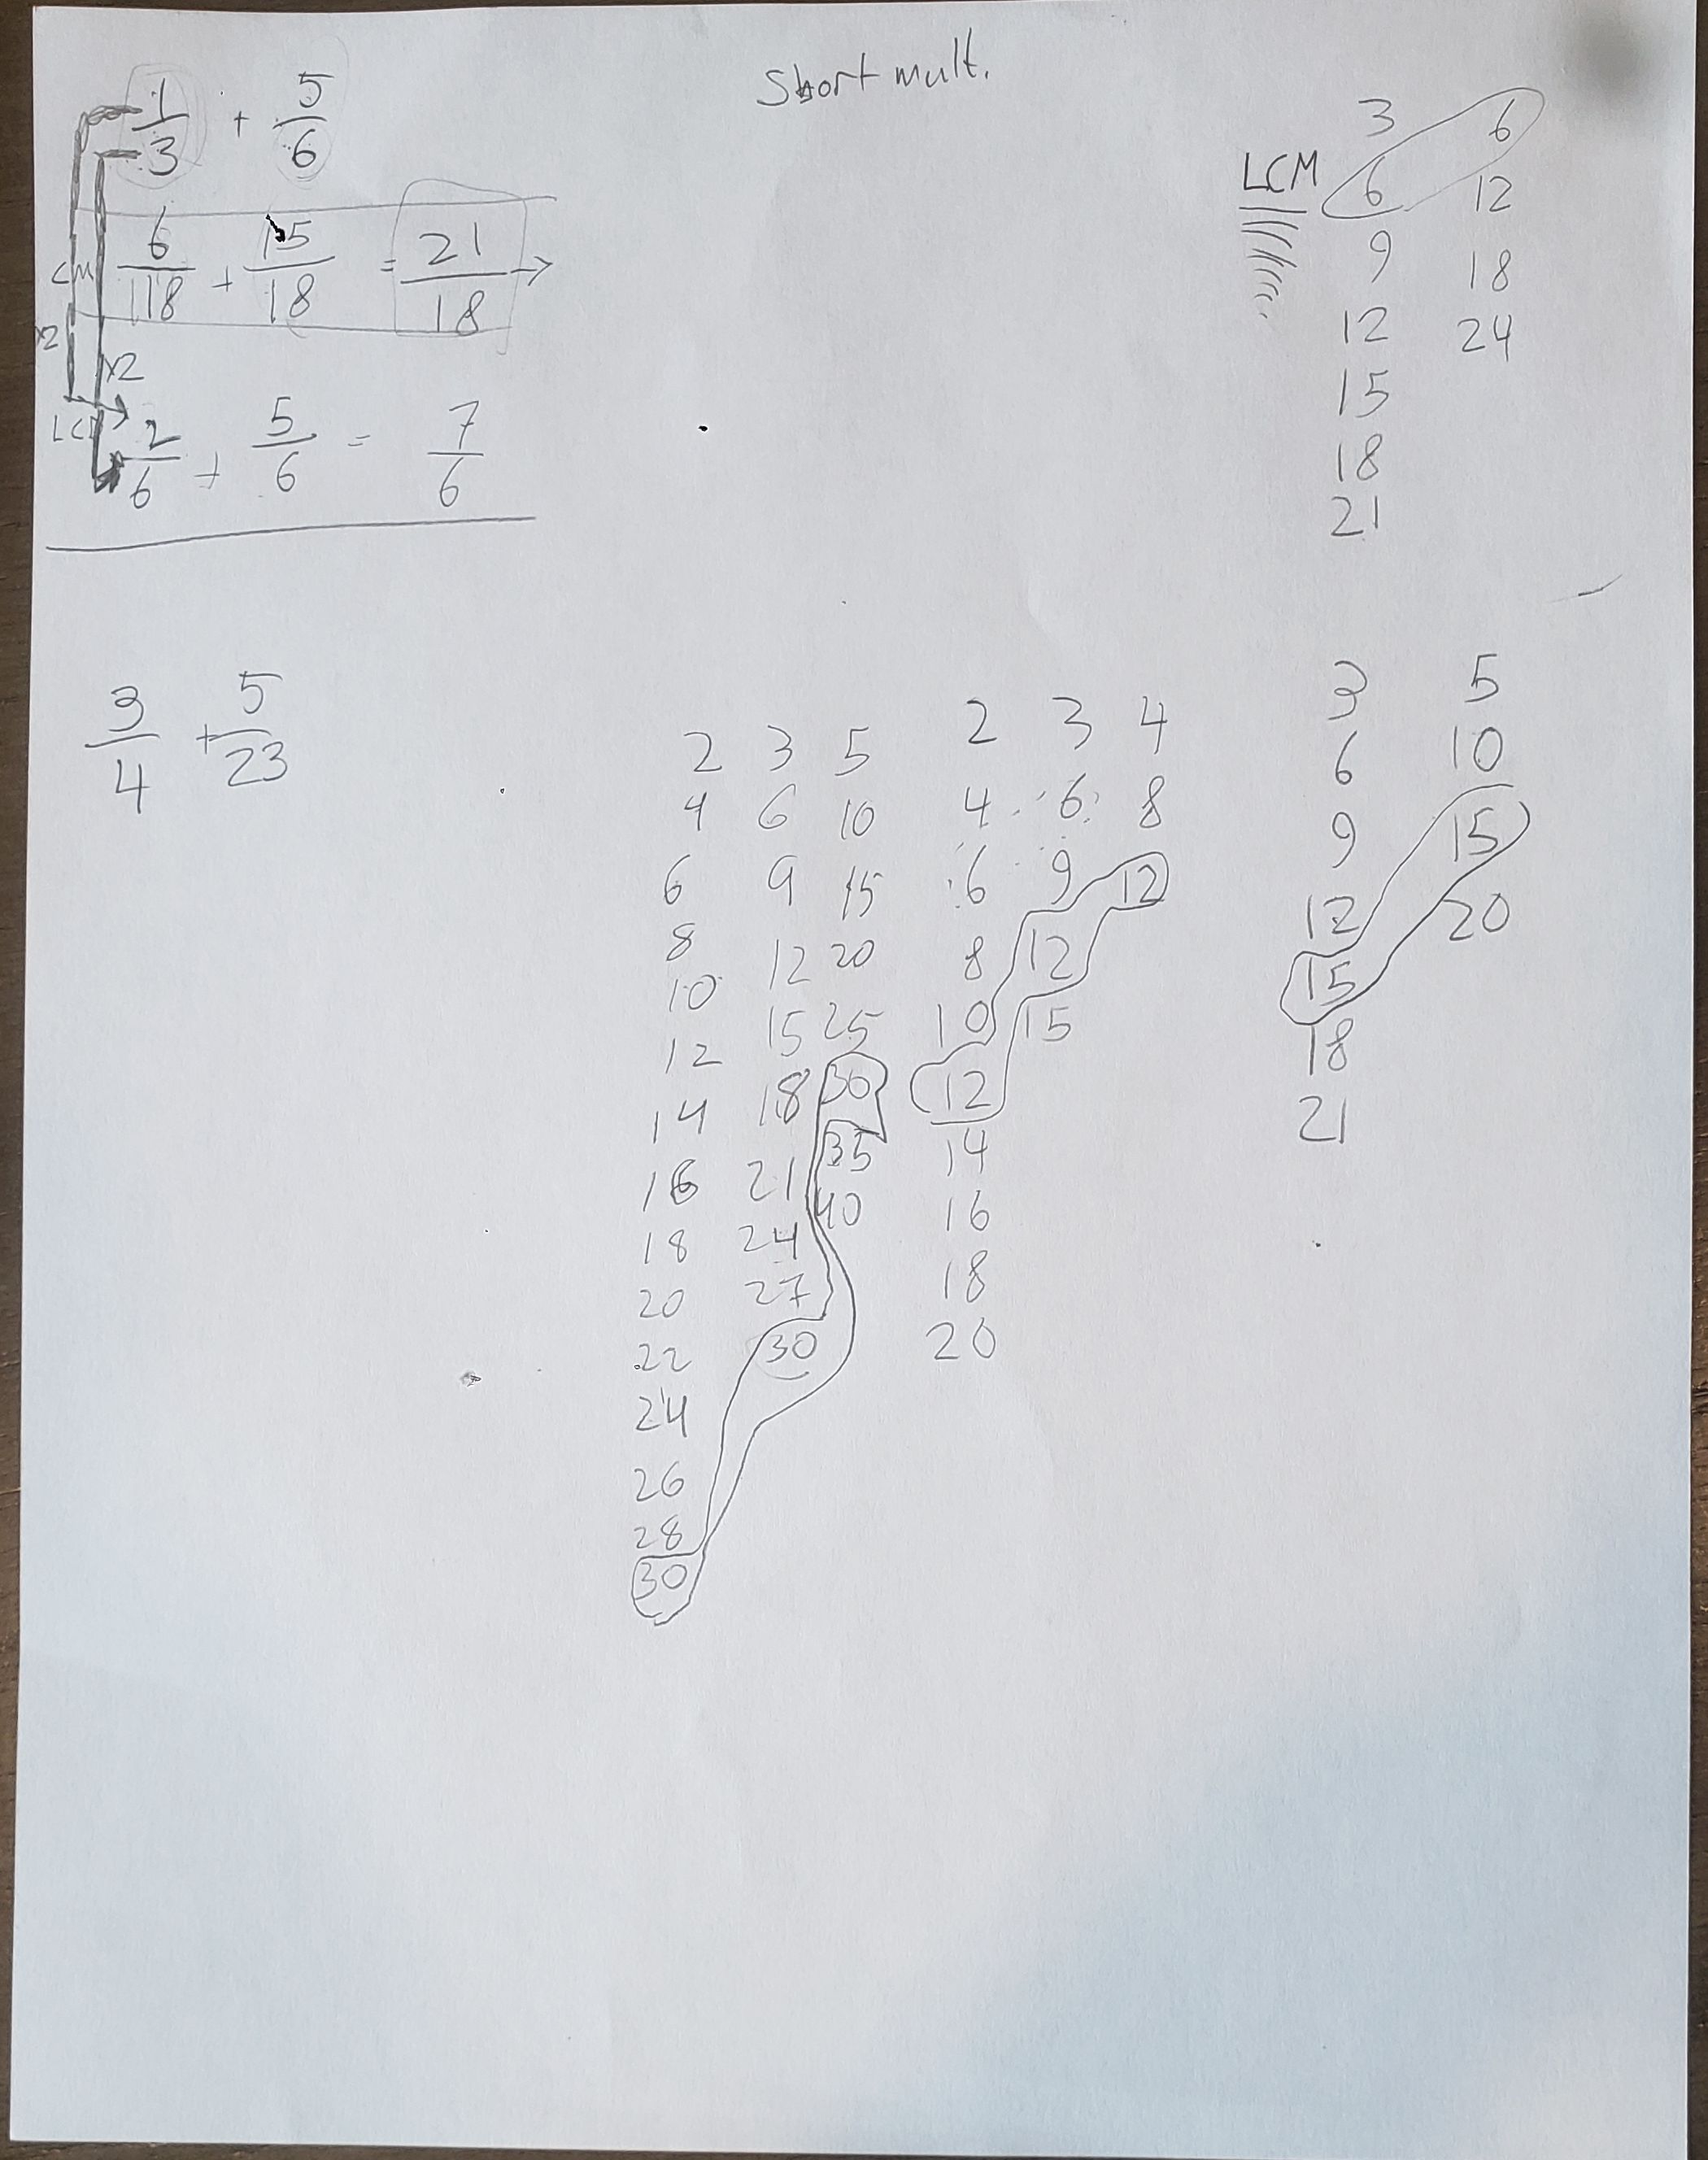 Short mult.
1/3 + 5/6
6/18 + 15/18 = 21/18 →
x2
x2
2/6 + 5/6 = 7/6
LCM
3 6
6 12
9 18
12 24
15
18
21
3/4 + 5/23
2 3 5
4 6 10
6 9 15
8 12 20
10 15 25
12 18 30
14 21 35
16 24 40
18 27
20 30
22
24
26
28
30
2 3 4
4 6 8
6 9 12
8 12
10 15
12
14
16
18
20
3 5
6 10
9 15
12 20
15
18
21